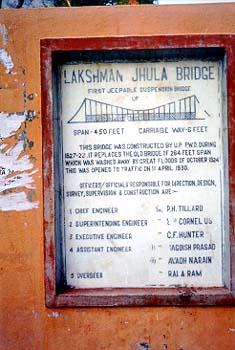 LAKSHMAN JHULA BRIDGE
FIRST JEEPABLE SUSPENSION BRIDGE
OF U P
SPAN-450 FEET CARRIAGE WAY-6 FEET
THIS BRIDGE WAS CONSTRUCTED BY U.P. P.W.D. DURING
1927-29. IT REPLACES THE OLD BRIDGE OF 284 FEET SPAN
WHICH WAS WASHED AWAY BY GREAT FLOODS OF OCTOBER 1924
THIS WAS OPENED TO TRAFFIC ON 11 APRIL 1930.
OFFICERS/OFFICIALS RESPONSIBLE FOR DIRECTION, DESIGN,
SURVEY, SUPERVISION & CONSTRUCTION ARE:-
1 CHIEF ENGINEER P.H. TILLARD
2 SUPERINTENDING ENGINEER CORNEL US
3 EXECUTIVE ENGINEER C.F. HUNTER
4 ASSISTANT ENGINEER JAGDISH PRASAD
AVADH NARAIN
5 OVERSEER BALA RAM